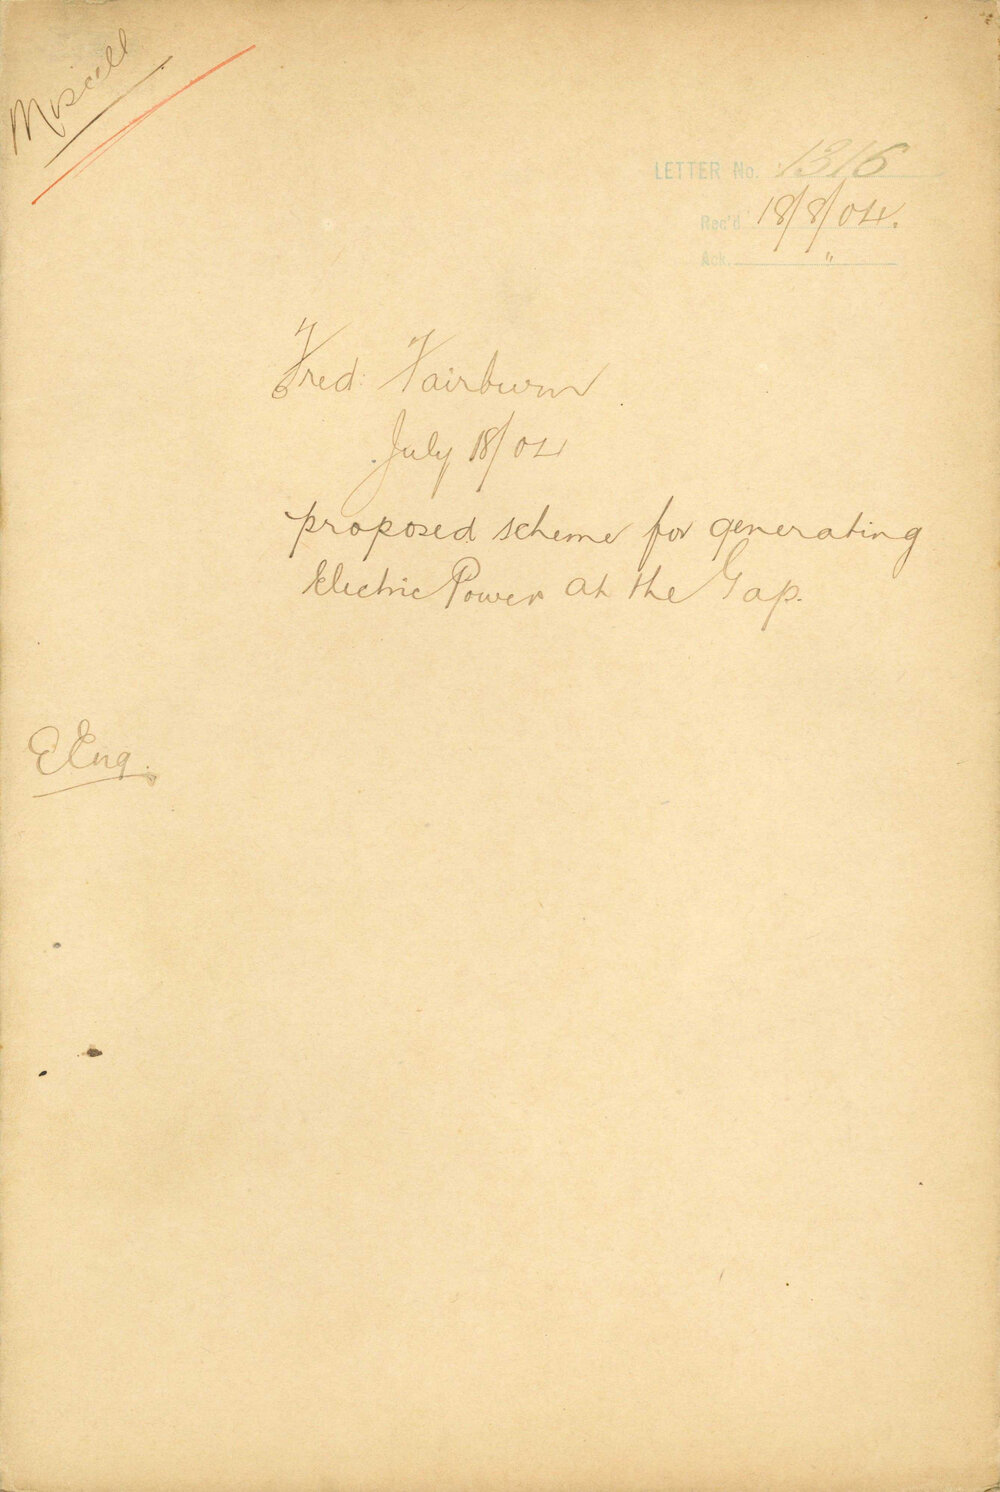 Miscell
LETTER No. 1316
Rec'd 18/8/04.
Ack. "
Fred: Fairburn
July 18/04
proposed scheme for generating
Electric Power at the Gap.
E Eng.